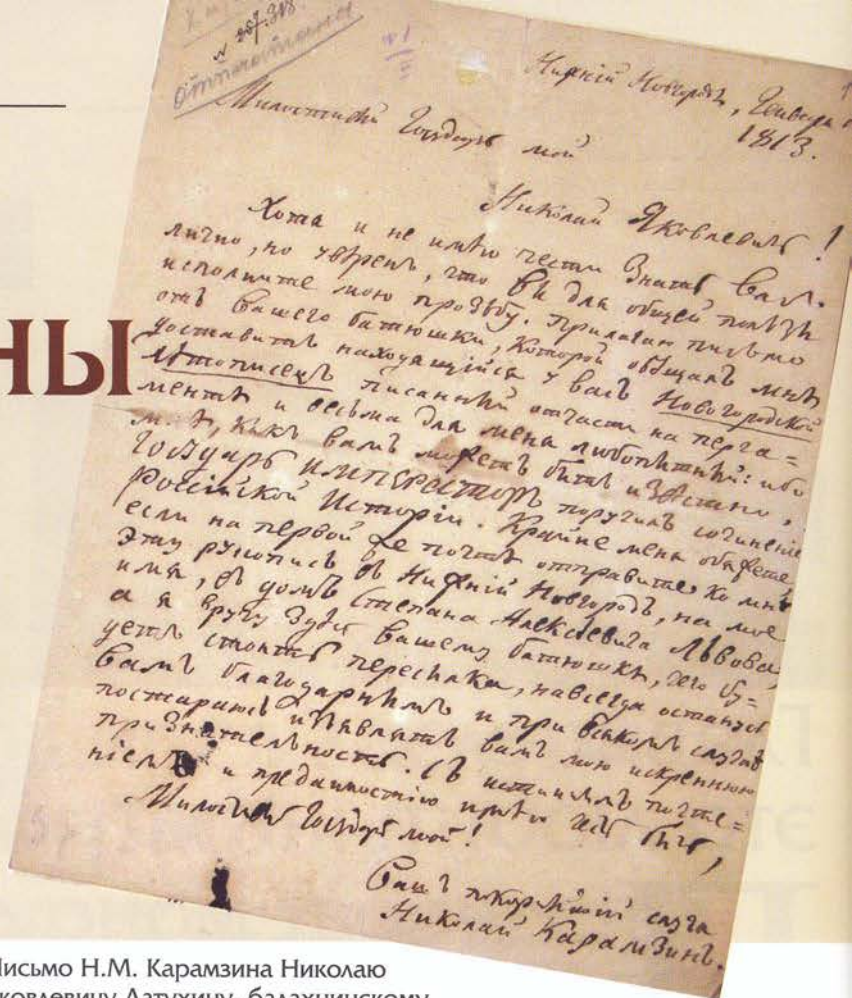 № 287.318
отпечатана
Нижній Новгородъ, Генваря
1813.
Милостивый Государь мой
Николай Яковлевичь!
Хотя и не имѣю чести знать Васъ
лично, но увѣренъ, что вы для общей пользы
исполните мою прозьбу. Прилагаю письмо
отъ вашего батюшки, которой обѣщалъ мнѣ
доставить находящійся у васъ Новогородской
Лѣтописецъ писанный отчасти на перга=
ментѣ и весьма для меня любопытный: ибо
мнѣ, какъ вамъ можетъ быть извѣстно,
Государь Императоръ поручилъ сочиненіе
Россійской Исторіи. Крайне меня обяжете
если на первой же почтѣ отправите ко мнѣ
эту рукопись въ Нижній Новгородъ, на мое
имя, въ домъ Степана Алексѣевича Львова,
а я вручу здѣсь вашему батюшкѣ, чего бу=
детъ стоить пересылка, навсегда останусь
вамъ благодарнымъ и при всякомъ случаѣ
постараюсь изъявлять вамъ мою искреннюю
признательность. Съ истиннымъ почте=
ніемъ и преданностію имѣю честь быть,
Милостивый Государь мой!
Вашъ покорнѣйшій слуга
Николай Карамзинъ.
НЫ
Письмо Н.М. Карамзина Николаю
Яковлевичу Латухину, балахнинскому